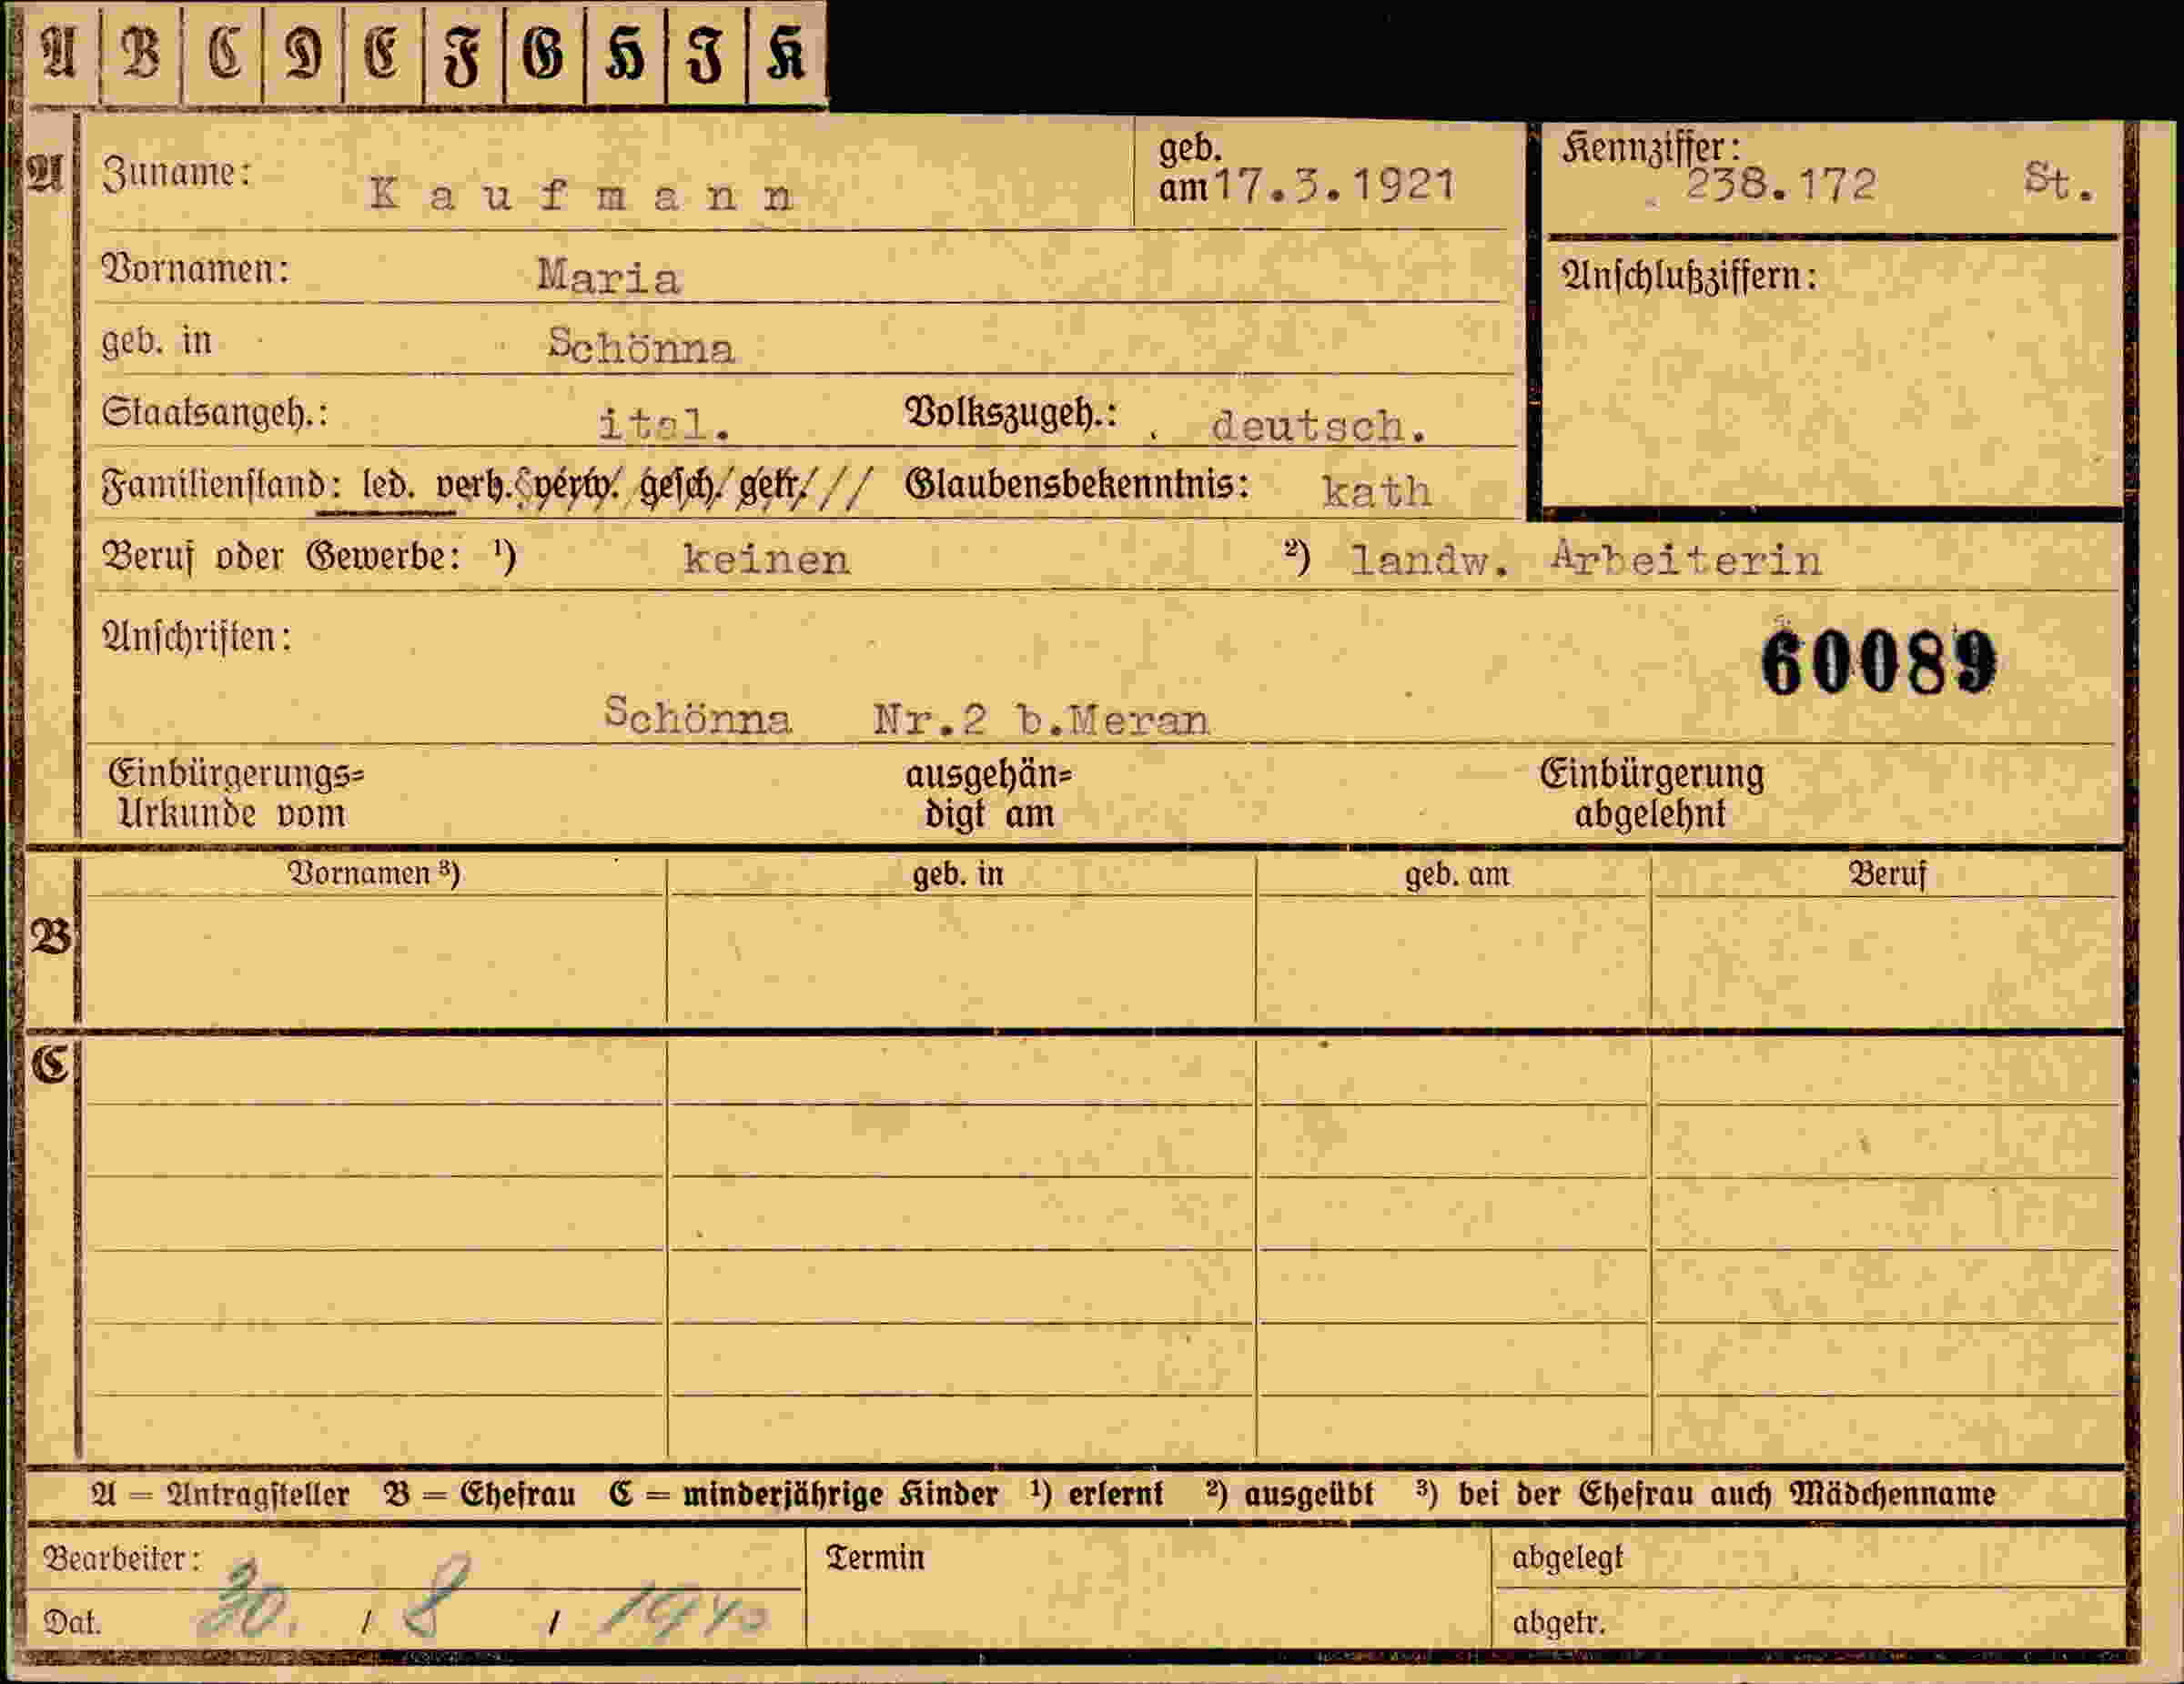 A B C D E F G H I K
A Zuname: Kaufmann geb. am 17.3.1921 Kennziffer: 238.172 St.
Vornamen: Maria Anschlußziffern:
geb. in Schönna
Staatsangeh.: ital. Volkszugeh.: deutsch.
Familienstand: led. verh. verw. gesch. getr. /// Glaubensbekenntnis: kath
Beruf oder Gewerbe: ¹) keinen ²) landw. Arbeiterin
Anschriften: 60089
Schönna Nr.2 b.Meran
Einbürgerungs- ausgehän- Einbürgerung
Urkunde vom digt am abgelehnt
Vornamen ³) geb. in geb. am Beruf
B
C
A = Antragsteller B = Ehefrau C = minderjährige Kinder ¹) erlernt ²) ausgeübt ³) bei der Ehefrau auch Mädchenname
Bearbeiter: Termin abgelegt
Dat. 30. / 8 / 1940 abgetr.